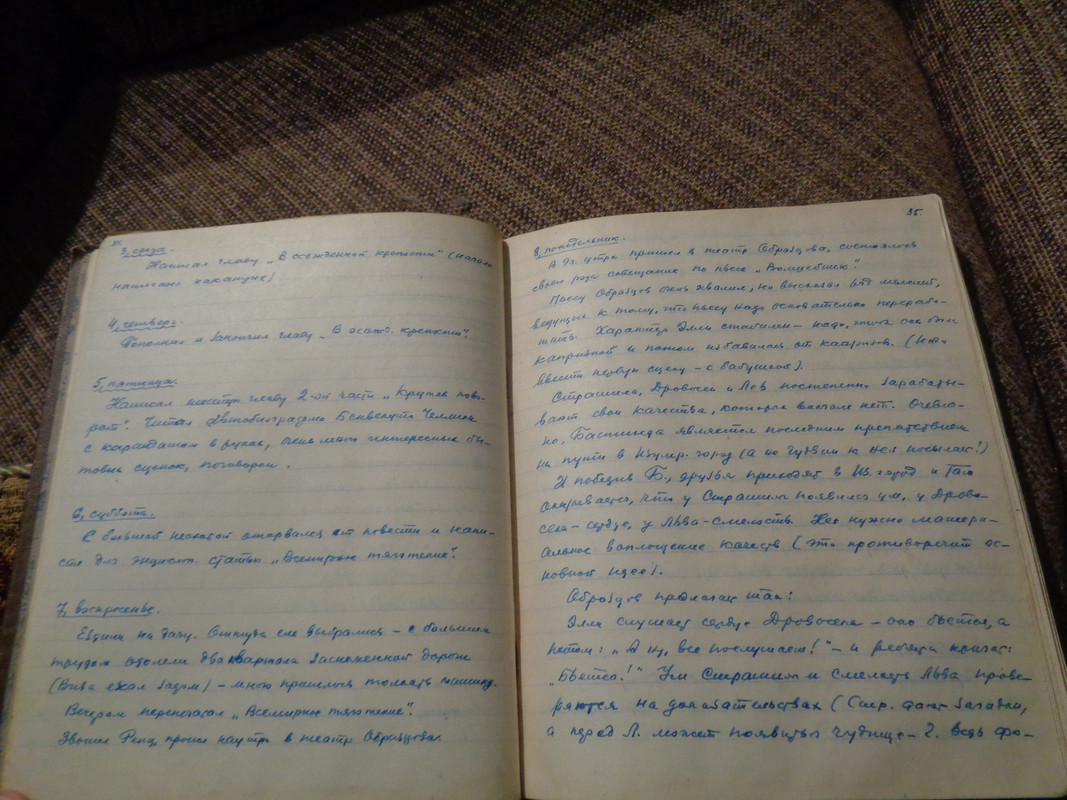 3, среда.
Написал главу „В осажденной крепости" (начало
написано накануне)
4, четверг.
Дополнил и закончил главу „В осажд. крепости".
5, пятница.
Написал шестую главу 2-ой части „Крутой пово-
рот". Читал Автобиографию Бенвенуто Челлини
с карандашом в руках, очень много интересных бы-
товых сценок, поговорок.
6, суббота.
С большой неохотой оторвался от повести и напи-
сал для энциклоп. статью „Всемирное тяготение".
7, воскресенье.
Ездили на дачу. Оттуда еле выбрались - с большим
трудом одолели два квартала заснеженной дороги
(Вива ехал задом) - много пришлось толкать машину.
Вечером перепечатал „Всемирное тяготение".
Звонил Ренц, просил наутро в театр Образцова.
35.
8, понедельник.
А Эг. утра пришел в театр Образцова, состоялось
своего рода совещание по пьесе „Волшебник".
Пьесу Образцов очень хвалил, но высказал ряд мыслей,
ведущих к тому, что пьесу надо основательно перерабо-
тать. Характер Элли стабилен - надо, чтоб она была
капризной и потом избавилась от капризов. (Надо
ввести первую сцену - с бабушкой).
Страшила, Дровосек и Лев постепенно зарабаты-
вают свои качества, которых вначале нет. Очевид-
но, Бастинда является последним препятствием
на пути в Изумр. город (а не Гудвин к ней посылает!)
И победив Б., друзья приходят в Из. город и там
открывается, что у Страшилы появился ум, у Дрово-
сека - сердце, у Льва - смелость. Не нужно матери-
альное воплощение качеств (это противоречит ос-
новной идее).
Образцов предлагает так:
Элли слушает сердце Дровосека - оно бьется, а
потом: „А ну, все послушаем!" - и ребята кричат:
„Бьется!" Ум Страшилы и смелость Льва прове-
ряются на доказательствах (Стр. дают загадки,
а перед Л. может появиться чудище - ?. Ведь фо-